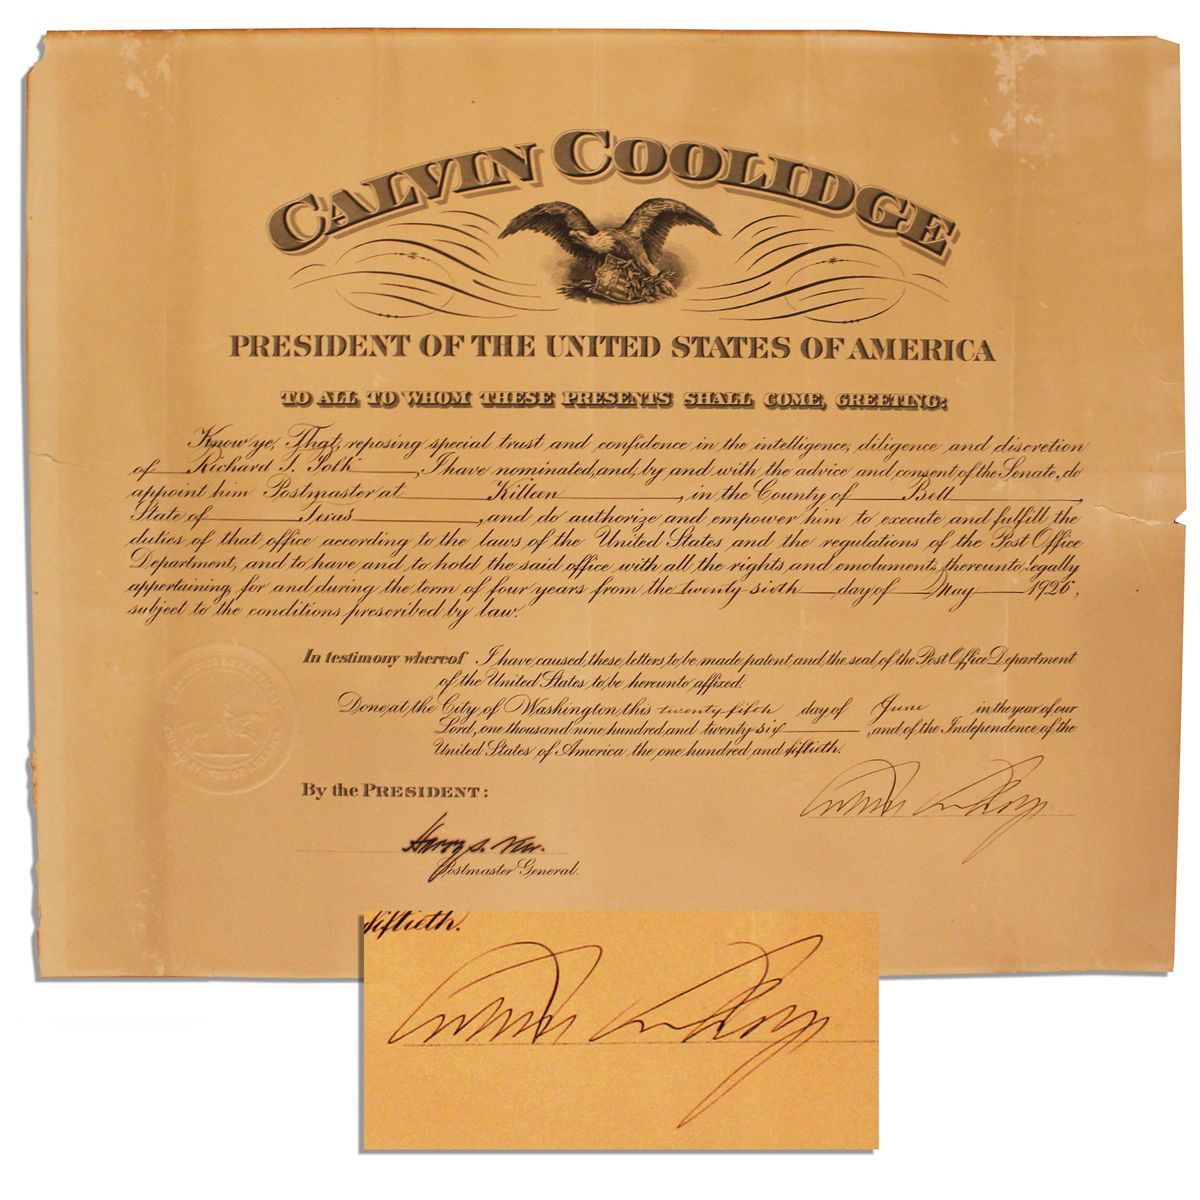 CALVIN COOLIDGE
PRESIDENT OF THE UNITED STATES OF AMERICA
TO ALL TO WHOM THESE PRESENTS SHALL COME, GREETING:
Know ye, That, reposing special trust and confidence in the intelligence, diligence and discretion
of Richard T. Polk, I have nominated, and, by and with the advice and consent of the Senate, do
appoint him Postmaster at Killeen, in the County of Bell,
State of Texas, and do authorize and empower him to execute and fulfill the
duties of that office according to the laws of the United States and the regulations of the Post Office
Department, and to have and to hold the said office with all the rights and emoluments thereunto legally
appertaining, for and during the term of four years from the twenty-sixth day of May 1926,
subject to the conditions prescribed by law.
In testimony whereof I have caused these letters to be made patent, and the seal of the Post Office Department
of the United States, to be hereunto affixed.
Done, at the City of Washington this twenty-fifth day of June in the year of our
Lord, one thousand nine hundred and twenty-six, and of the Independence of the
United States of America the one hundred and fiftieth.
By the PRESIDENT:
Calvin Coolidge
Harry S. New.
Postmaster General.
fiftieth.
Calvin Coolidge